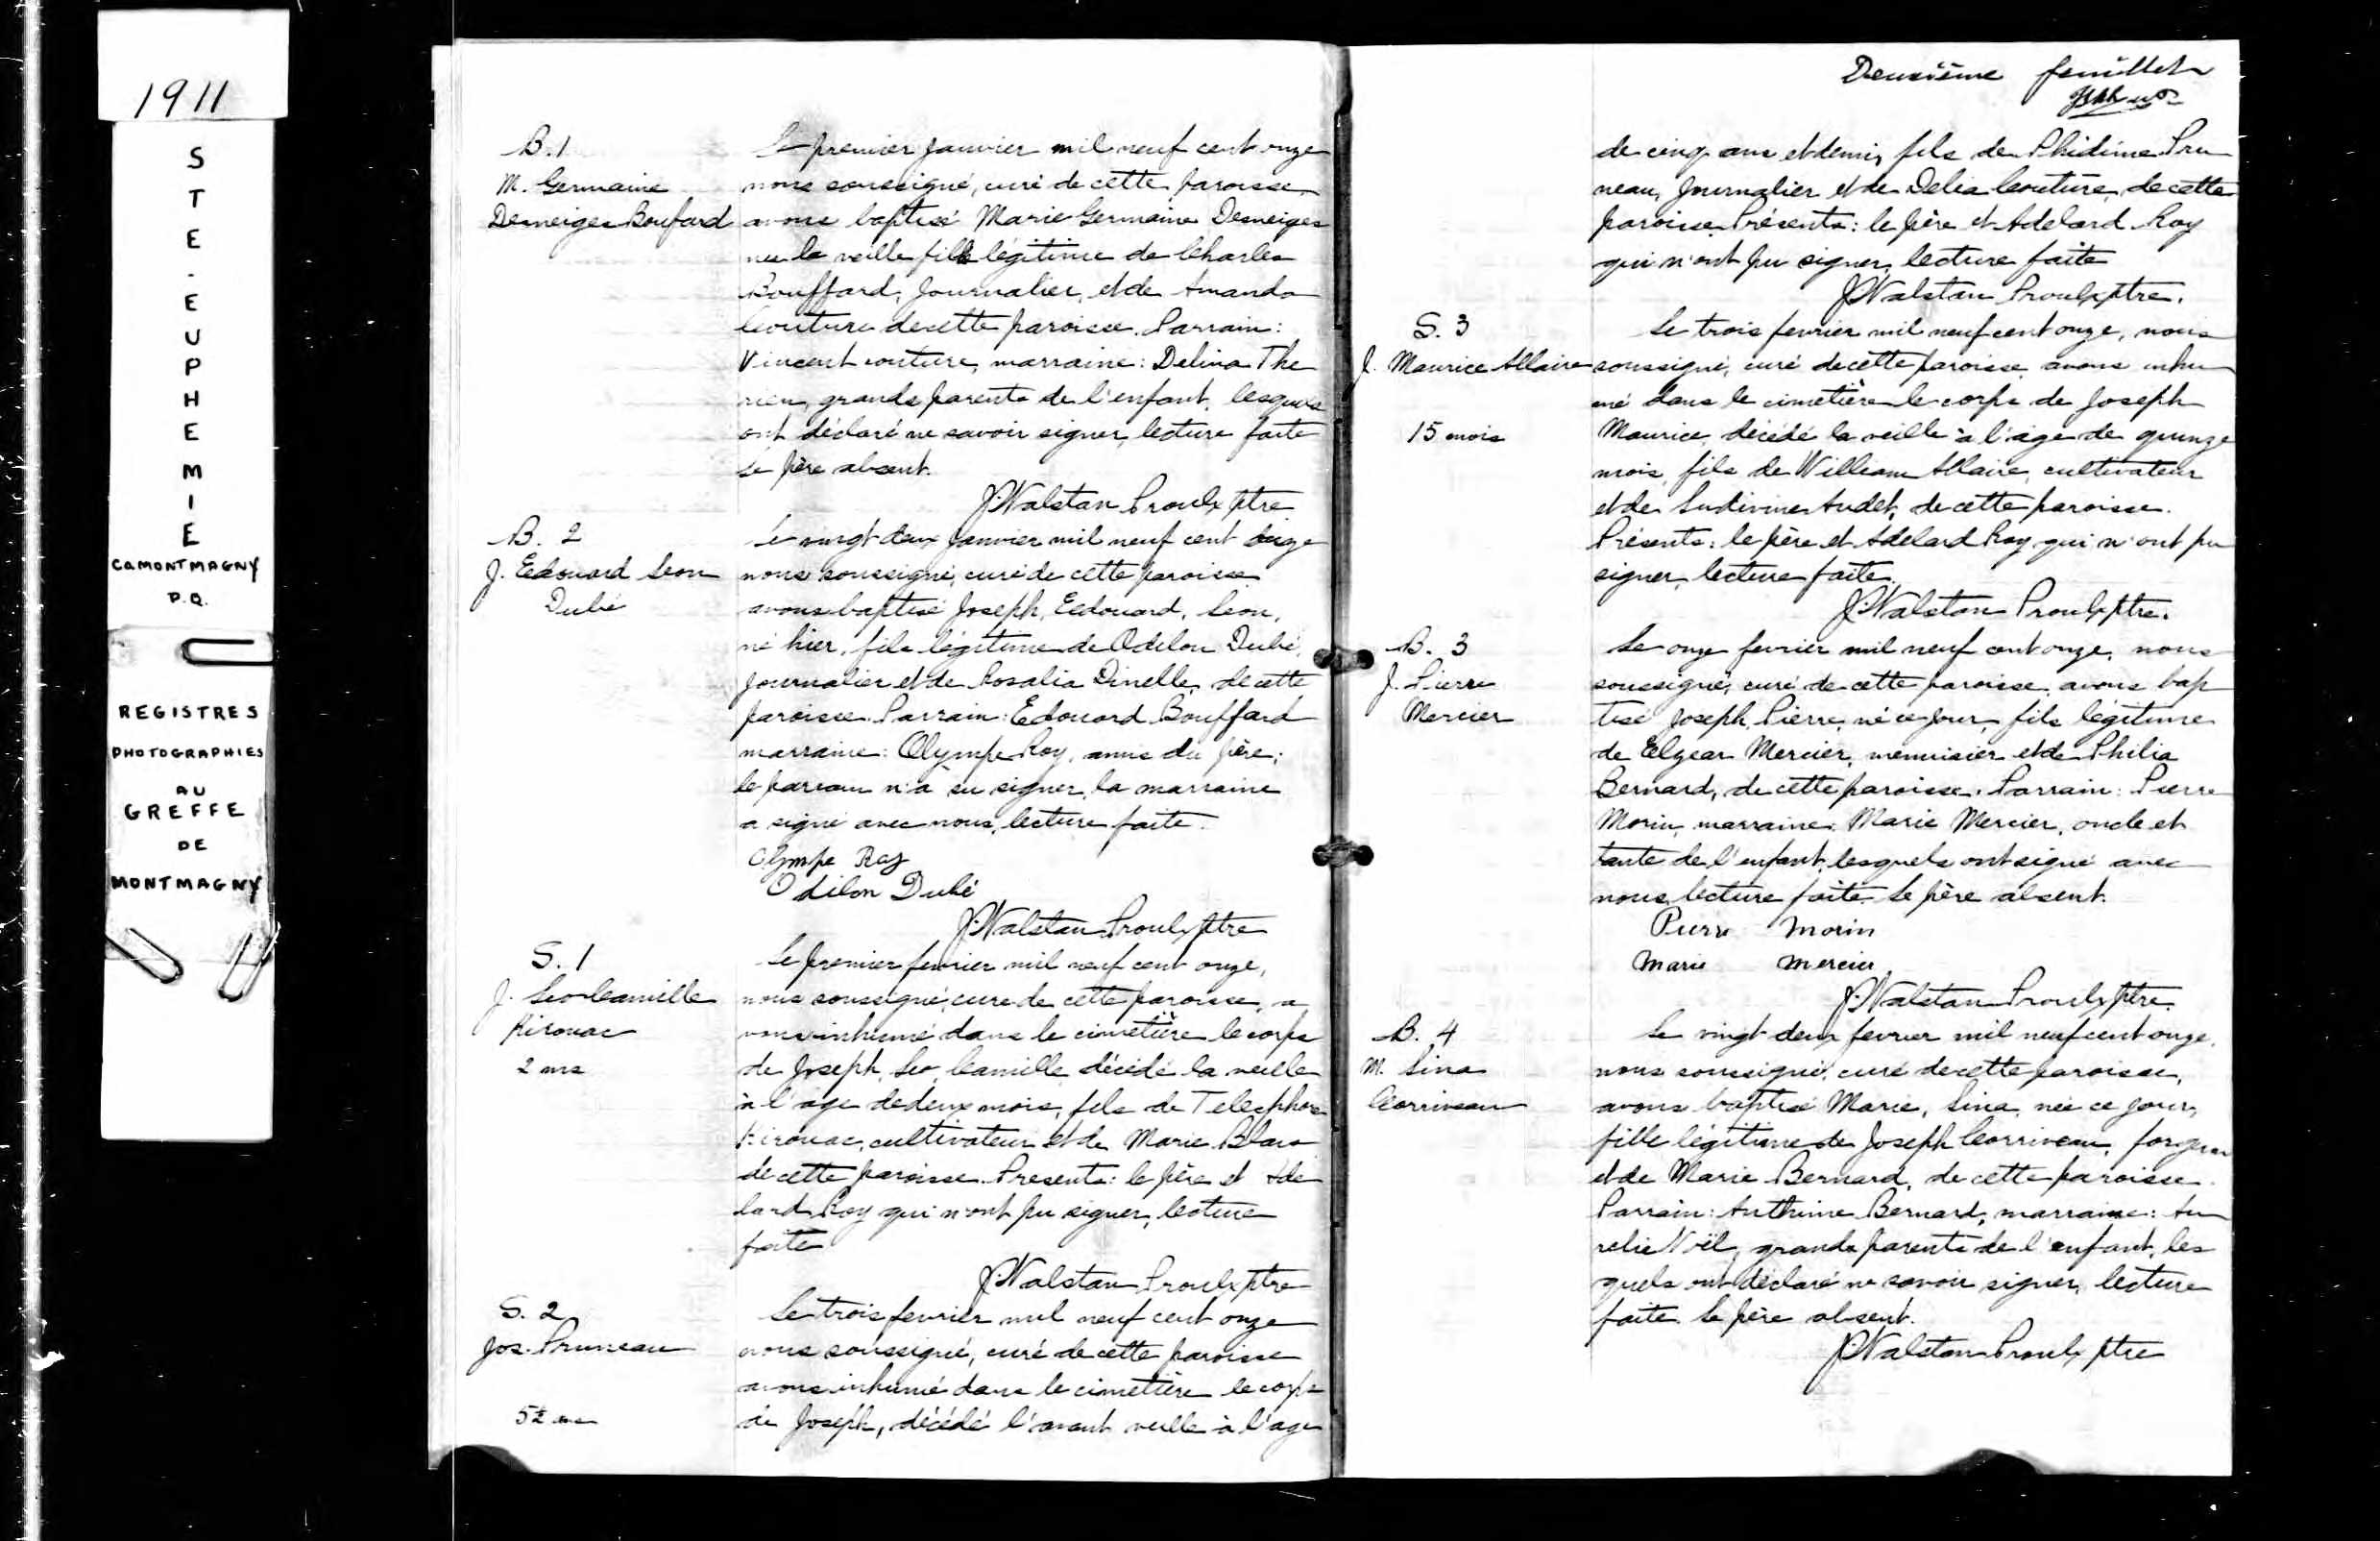 1911
STE. EUPHEMIE
CO. MONTMAGNY
P.Q.
REGISTRES
PHOTOGRAPHIES
AU
GREFFE
DE
MONTMAGNY
B. 1
M. Germaine
Desneiges Boufard
Le premier janvier mil neuf cent onze
nous soussigné, curé de cette paroisse
avons baptisé Marie Germaine Desneiges
née la veille fille légitime de Charles
Bouffard, journalier, et de Amanda
Couture de cette paroisse. Parrain:
Vincent couture, marraine: Delina The
rien, grands parents de l'enfant, lesquels
ont déclaré ne savoir signer, lecture faite
Le père absent.
J. Walstan Proulx ptre
B. 2
J. Edouard Leon
Dubé
Le vingt deux janvier mil neuf cent onze
nous soussigné, curé de cette paroisse
avons baptisé Joseph, Edouard, Leon,
né hier, fils légitime de Odilon Dubé,
journalier et de Rosalia Dinelle, de cette
paroisse. Parrain: Edouard Bouffard
marraine: Olympe Roy, amis du père;
le parrain n'a su signer, la marraine
a signé avec nous, lecture faite.
Olympe Roy
Odilon Dubé
J. Walstan Proulx ptre
S. 1
J. Leo Camille
Kirouac
2 ms
Le premier fevrier mil neuf cent onze,
nous soussigné, curé de cette paroisse, a
vons inhumé dans le cimetière le corps
de Joseph, Leo, Camille décédé la veille
à l'age de deux mois, fils de Telesphore
Kirouac, cultivateur et de Marie Blais
de cette paroisse. Presents: le père et Ade
lard Roy qui n'ont pu signer, lecture
faite
J. Walstan Proulx ptre
S. 2
Jos. Pruneau
5½ ans
Le trois fevrier mil neuf cent onze
nous soussigné, curé de cette paroisse
avons inhumé dans le cimetière le corps
de Joseph, décédé l'avant veille à l'age
Deuxième feuillet
de cinq ans et demi, fils de Phidime Pru
neau, Journalier et de Delia Couture, de cette
paroisse. Présents: le père et Adelard Roy
qui n'ont pu signer, lecture faite
J. Walstan Proulx ptre.
S. 3
J. Maurice Allaire
15 mois
Le trois fevrier mil neuf cent onze, nous
soussigné, curé de cette paroisse avons inhu
mé dans le cimetière le corps de Joseph
Maurice, décédé la veille à l'âge de quinze
mois, fils de William Allaire, cultivateur
et de Ludivine Audet, de cette paroisse.
Présents: le père et Adelard Roy qui n'ont pu
signer, lecture faite.
J. Walstan Proulx ptre.
B. 3
J. Pierre
Mercier
Le onze fevrier mil neuf cent onze, nous
soussigné, curé de cette paroisse, avons bap
tisé Joseph, Pierre, né ce jour, fils légitime
de Elzear Mercier, menuisier et de Philia
Bernard, de cette paroisse. Parrain: Pierre
Morin, marraine: Marie Mercier, oncle et
tante de l'enfant, lesquels ont signé avec
nous, lecture faite. Le père absent.
Pierre Morin
Marie Mercier
J. Walstan Proulx ptre.
B. 4
M. Lina
Corriveau
Le vingt deux fevrier mil neuf cent onze,
nous soussigné, curé de cette paroisse,
avons baptisé Marie, Lina, née ce jour,
fille légitime de Joseph Corriveau, forgeron
et de Marie Bernard, de cette paroisse.
Parrain: Anthime Bernard, marraine: Au
relie Noël, grands parents de l'enfant, les
quels ont déclaré ne savoir signer, lecture
faite. Le père absent.
J. Walstan Proulx ptre